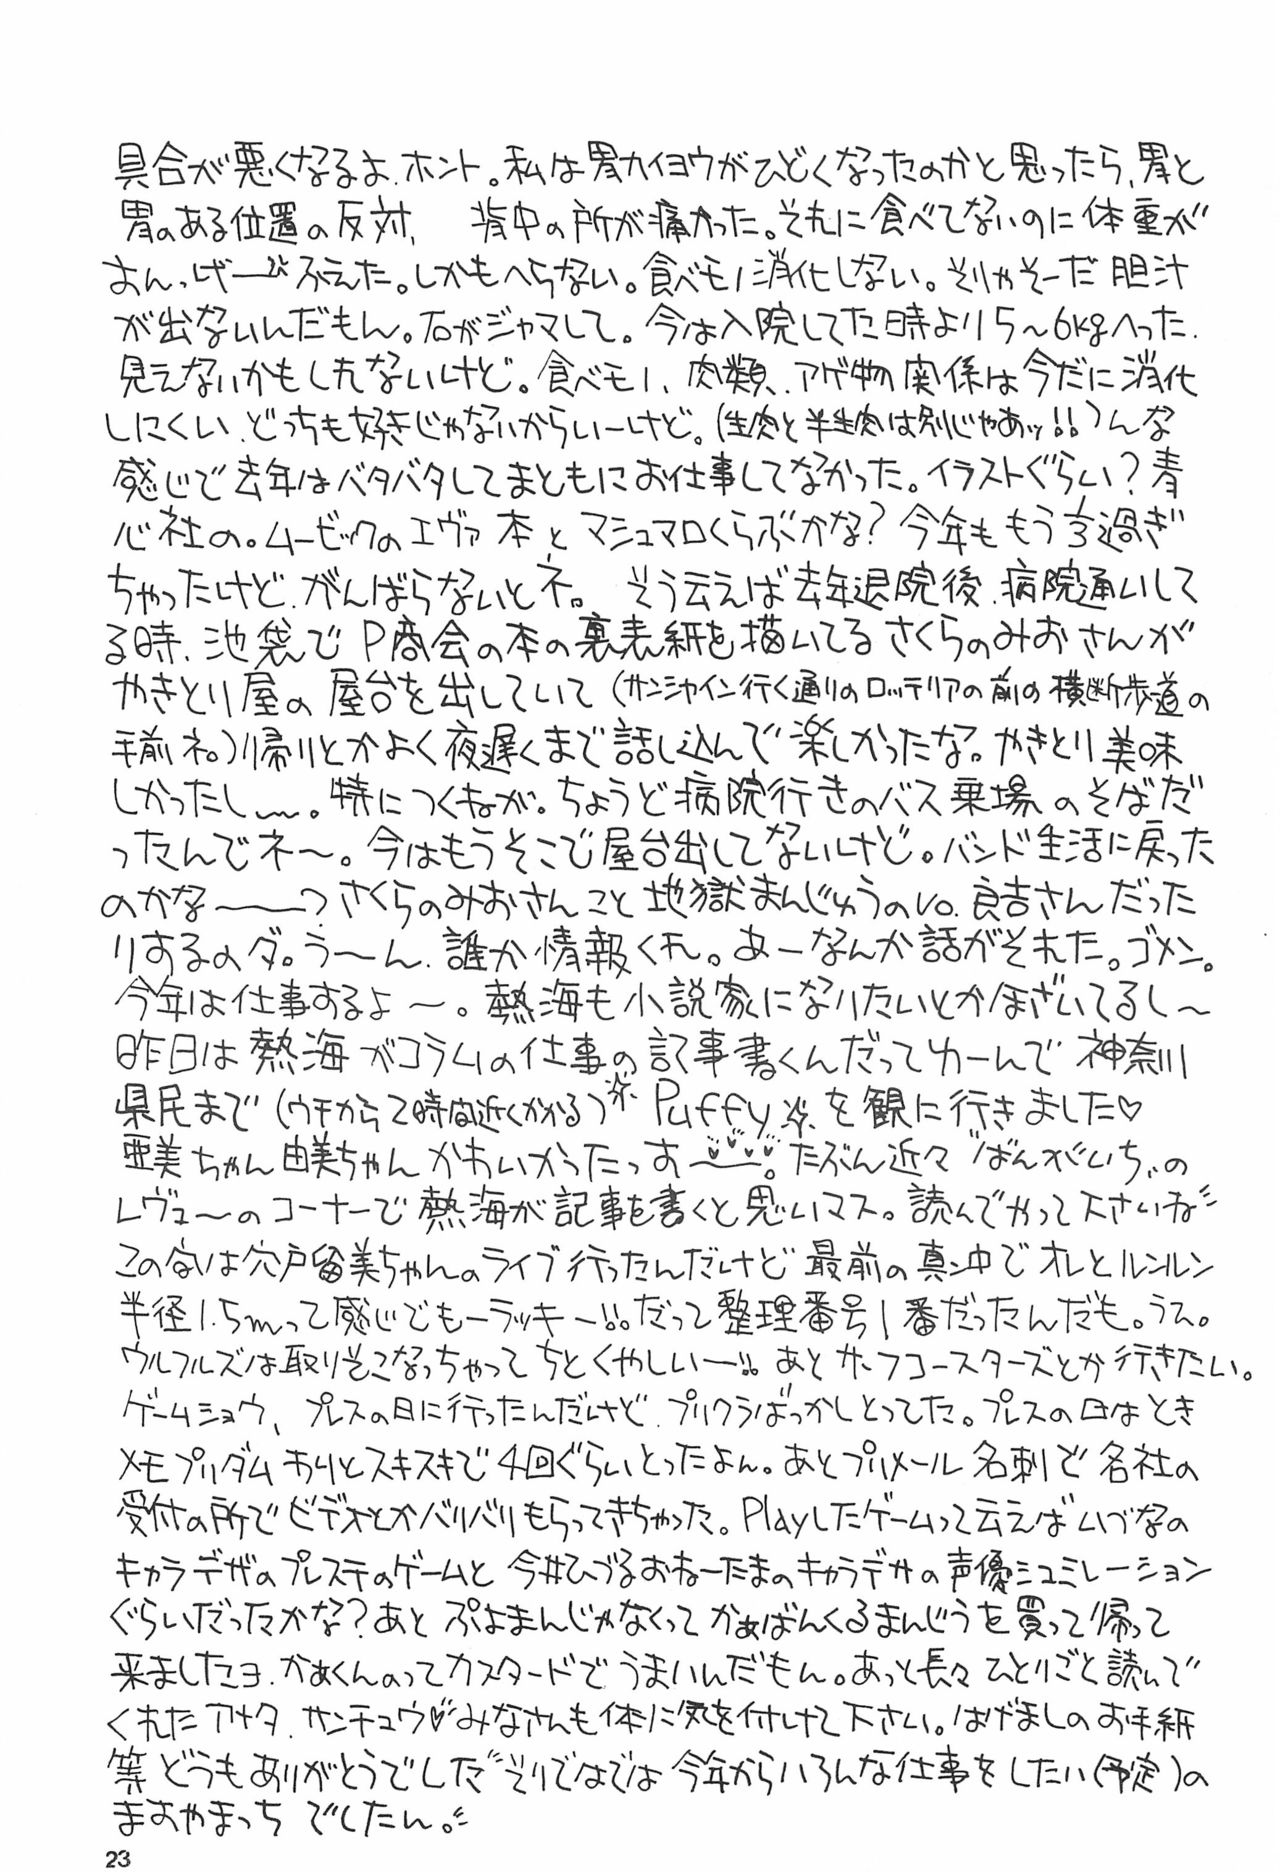 具合が悪くなるよ、ホント。私は胃カイヨウがひどくなったのかと思ったら、胃と
胃のある位置の反対、背中の所が痛かった。それに食べてないのに体重が
ふえた。しかもへらない。食べモノ消化しない。そりゃそーだ胆汁
が出ないんだもん。石がジャマして。今は入院してた時より5〜6kgへった。
見えないかもしれないけど。食べモノ、肉類、アゲ物関係は今だに消化
しにくい、どっちも好きじゃないからいーけど。(生肉と半生肉は別じゃあッ!!)んな
感じで去年はバタバタしてまともにお仕事してなかった。イラストぐらい?青
心社の。ムービックのエヴァ本とマシュマロくらぶかな?今年ももう⅓過ぎ
ちゃったけど、がんばらないとネ。そう云えば去年退院後、病院通いして
る時、池袋でP商会の本の裏表紙を描いてるさくらのみおさんが
やきとり屋の屋台を出していて(サンシャイン行く通りのロッテリアの前の横断歩道の
手前ネ。)帰りとかよく夜遅くまで話し込んで楽しかったな。やきとり美味
しかったし〜。特につくねが。ちょうど病院行きのバス乗場のそばだ
ったんでネ〜。今はもうそこで屋台出してないけど。バンド生活に戻った
のかな〜?さくらのみおさんこと地獄まんじゅうのVo.良吉さんだった
りするのダ。う〜ん、誰か情報くれ。あーなんか話がそれた。ゴメン。
今年は仕事するよ〜。熱海も小説家になりたいとかほざいてるし〜
昨日は熱海がコラムの仕事の記事書くんだってゆーんで神奈川
県民まで(ウチから2時間近くかかる)☆Puffy☆を観に行きました♡
亜美ちゃん由美ちゃんかわいかったっす〜。たぶん近々“ばんがいち”の
レヴュ〜のコーナーで熱海が記事を書くと思いマス。読んでやって下さいね
この前は宍戸留美ちゃんのライブ行ったんだけど最前の真ン中でオレとルンルン
半径1.5mって感じでもーラッキー!!だって整理番号1番だったんだも。うふ。
ウルフルズは取りそこなっちゃってちとくやしいー!!あとサーフコースターズとか行きたい。
ゲームショウ、プレスの日に行ったんだけど、プリクラばっかしとってた。プレスの日はとき
メモプリダムおりとスキスキで4回ぐらいとったよん。あとプリメール名刺で各社の
受付の所でビデオとかバリバリもらってきちゃった。Playしたゲームって云えばいづなの
キャラデザのプレステのゲームと今井ひづるおねーたまのキャラデザの声優シュミレーション
ぐらいだったかな?あとぷよまんじゃなくってかぁばんくるまんじうを買って帰って
来ましたヨ。かぁくんのってカスタードでうまいんだもん。あっと長々ひとりごと読んで
くれたアナタ、サンチュウ♡みなさんも体に気を付けて下さい。はげましのお手紙
等どうもありがとうでした。そりではでは今年からいろんな仕事をしたい(予定)の
ますやまっちでしたん。
23